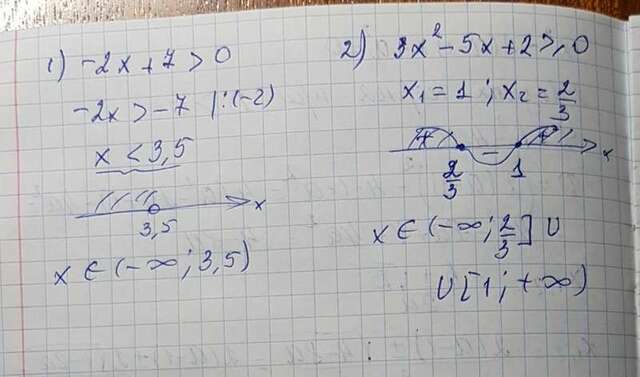 1) -2x + 7 > 0
-2x > -7 |:(-2)
x < 3,5
3,5 x
x ∈ (-∞; 3,5)
2) 3x² - 5x + 2 ≥ 0
x₁ = 1 ; x₂ = 2/3
+ - + x
2/3 1
x ∈ (-∞; 2/3] ∪
∪ [1; +∞)